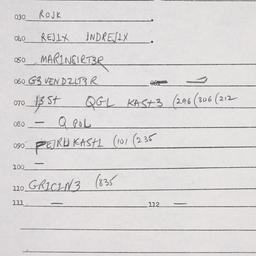 030 ROJK
040 REJIX INDREJIX.
050 MARINGIRT3R
060 G3VENDZLT3R —
070 13St QGL KAST3 (296 (306 (212
080 — Q POL
090 PEIRU KAST1 (101 (235
100 —
110 GRICIN3 (835
111 — 112 —